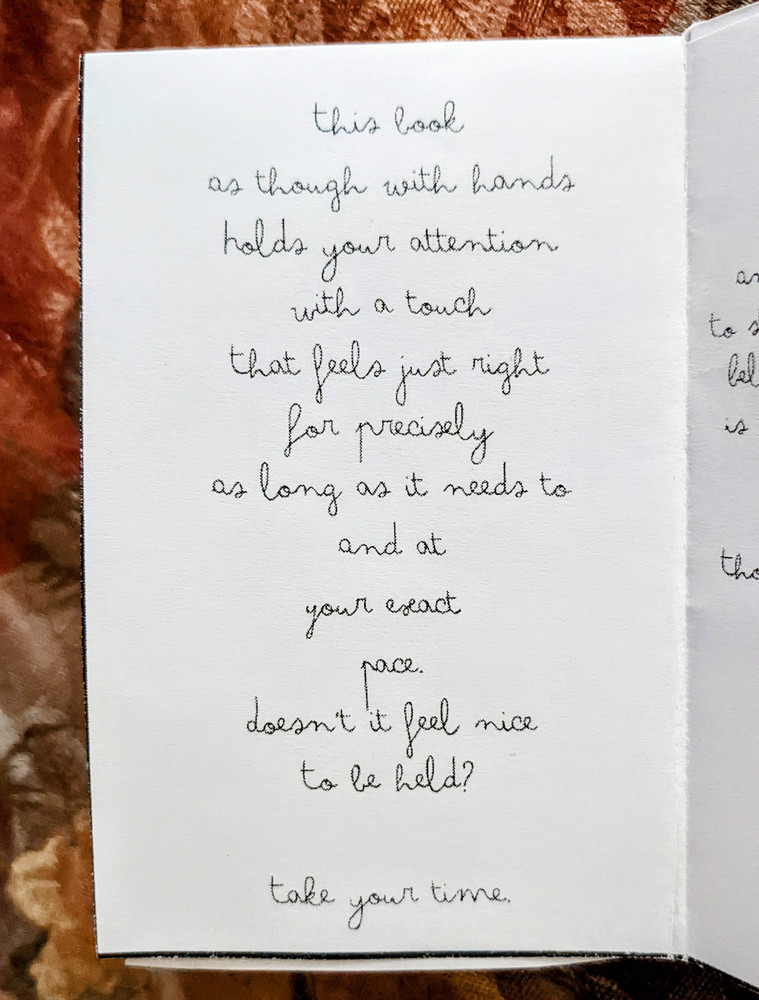 this book
as though with hands
holds your attention
with a touch
that feels just right
for precisely
as long as it needs to
and at
your exact
pace.
doesn't it feel nice
to be held?
take your time.
to
is